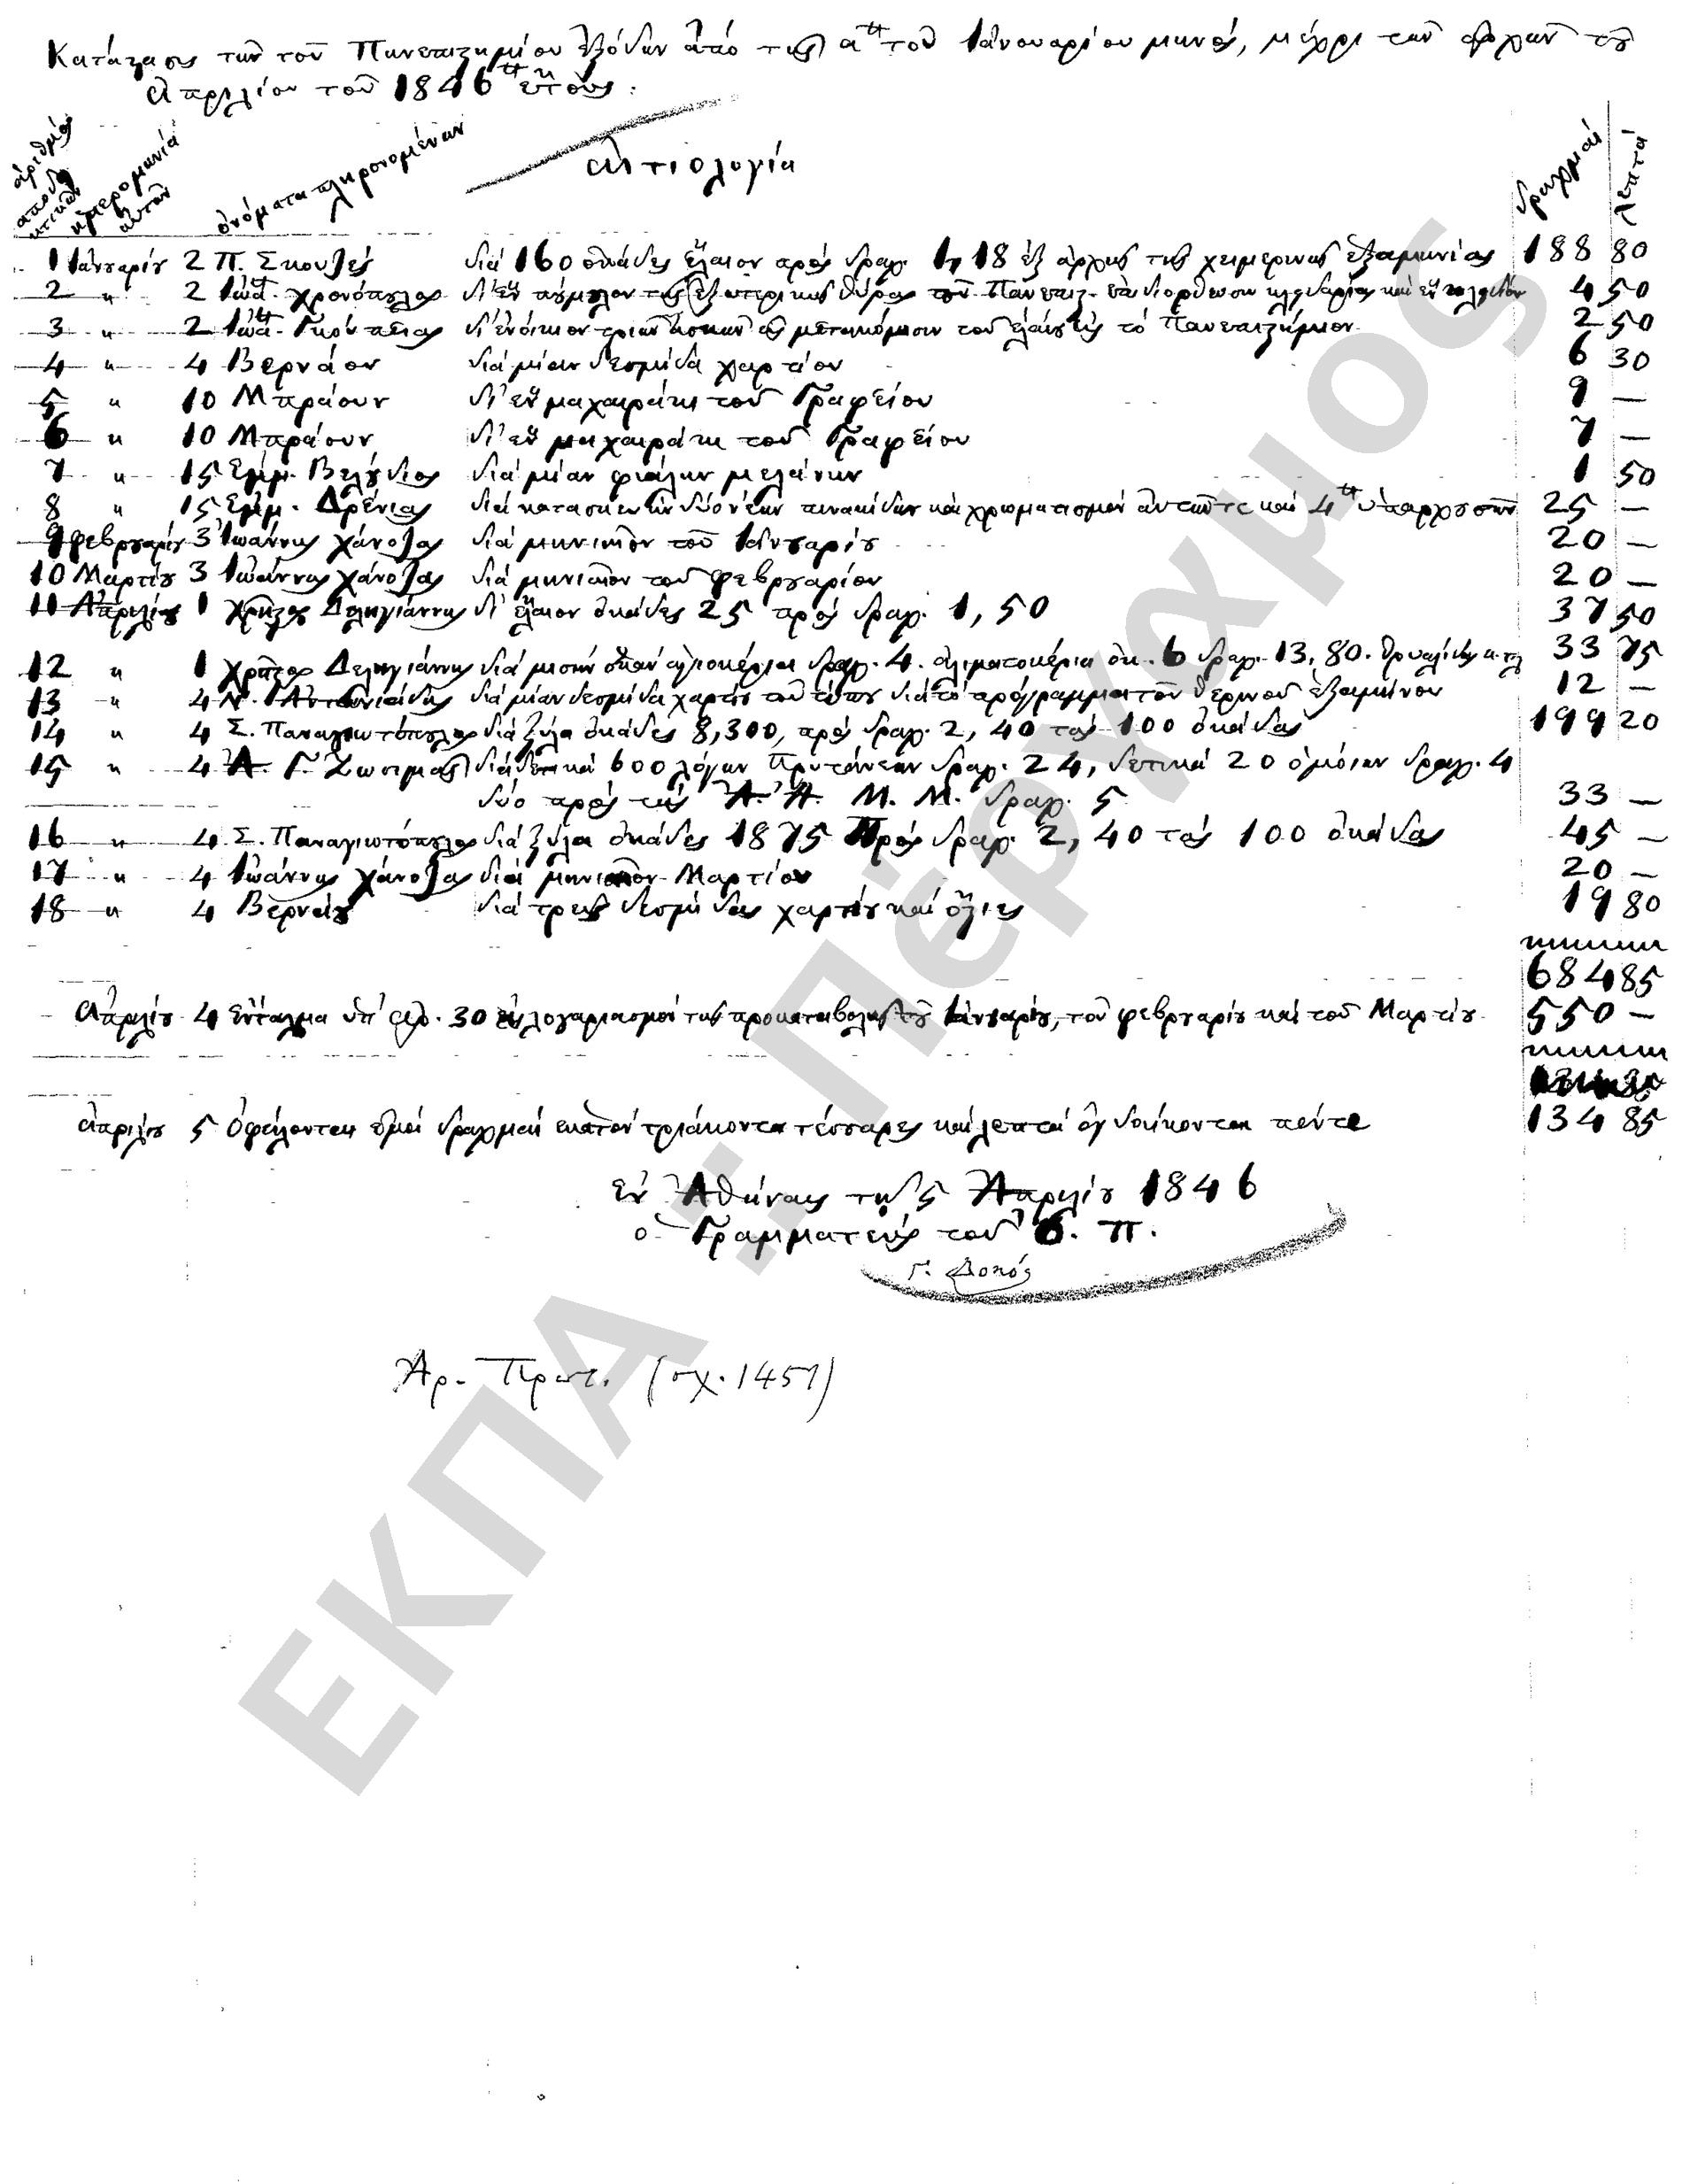 Κατάστασις τῶν τοῦ Πανεπιστημίου ἐξόδων ἀπό τῆς α τοῦ Ἰανουαρίου μηνός, μέχρι τῶν ἀρχῶν τοῦ
Ἀπριλίου τοῦ 1846 ἔτους.
ἀριθμός ἀποδεικτικῶν
ἡμερομηνία αὐτῶν
ὀνόματα πληρονομένων
αἰτιολογία
δραχμαί
λεπτά
1 Ἰανουαρίου 2 Π. Σκουζές διά 160 ὀκάδες ἔλαιον πρός δραχ. 1, 18 ἐξ ἀρχῆς τῆς χειμερινῆς ἐξαμηνίας 188 80
2 " 2 Ἰωά. Χρονόπουλος δι' ἕν πόμολον τῆς ἐξωτερικῆς θύρας τοῦ Πανεπιστ. διόρθωσιν κλειδαρίας καί ἕν κλειδίον 4 50
3 " 2 Ἰωά. δι' ἐνοίκιον τριῶν ἀσκῶν μετακόμισιν τοῦ ἐλαίου εἰς τό Πανεπιστήμιον 2 50
4 " 4 Βερνάου διά μίαν δεσμίδα χαρτίου 6 30
5 " 10 Μπράουν δι' ἕν μαχαιράκι τοῦ Γραφείου 9 —
6 " 10 Μπράουν δι' ἕν μαχαιράκι τοῦ Γραφείου 7 —
7 " 15 Ἐμμ. Βελούδιος διά μίαν φιάλην μελάνην 1 50
8 " 15 Ἐμμ. Δρένιας διά κατασκευήν δύο νέων πινακίδων καί χρωματισμόν αὐτῶν τε καί 4 ὑπαρχουσῶν 25 —
9 Φεβρουαρίου 3 Ἰωάννης Χάνοζας διά μηνιαῖον τοῦ Ἰανουαρίου 20 —
10 Μαρτίου 3 Ἰωάννης Χάνοζας διά μηνιαῖον τοῦ Φεβρουαρίου 20 —
11 Ἀπριλίου 1 Χρῆστος Δεληγιάννης δι' ἔλαιον ὀκάδες 25 πρός δραχ. 1, 50 37 50
12 " 1 Χρῆστος Δεληγιάννης διά μισήν ὀκάν ἁγιοκέρια δραχ. 4. ἀλιματοκέρια ὀκ. 6 δραχ. 13, 80. θρυαλίδας κ.τλ 33 75
13 " 4 Ν. Ἀντωνιάδης διά μίαν δεσμίδα χαρτίου τοῦ τύπου διά τό πρόγραμμα τοῦ θερινοῦ ἐξαμήνου 12 —
14 " 4 Σ. Παναγιωτόπουλος διά ξύλα ὀκάδες 8,300, πρός δραχ. 2, 40 τάς 100 ὀκάδας 199 20
15 " 4 Α. Γ. Ζωσιμᾶς διά δετικά 600 λόγων Πρυτάνεων δραχ. 24, δετικά 20 ὁμοίων δραχ. 4
δύο πρός τάς Α. Α. Μ. Μ. δραχ. 5 33 —
16 " 4 Σ. Παναγιωτόπουλος διά ξύλα ὀκάδες 1875 πρός δραχ. 2, 40 τάς 100 ὀκάδας 45 —
17 " 4 Ἰωάννης Χάνοζας διά μηνιαῖον Μαρτίου 20 —
18 " 4 Βερνάου διά τρεῖς δεσμίδας χαρτίου καί ὄλιες 19 80
684 85
Ἀπριλίου 4 ἔνταλμα ὑπ' ἀρ. 30 εἰς λογαριασμόν τῆς προκαταβολῆς τοῦ Ἰανουαρίου, τοῦ Φεβρουαρίου καί τοῦ Μαρτίου 550 —
Ἀπριλίου 5 Ὀφείλονται ἐμοί δραχμαί ἑκατόν τριάκοντα τέσσαρες καί λεπτά ὀγδοήκοντα πέντε 134 85
ἐν Ἀθήναις τῇ 5 Ἀπριλίου 1846
ὁ Γραμματεύς τοῦ Ὀ. Π.
Γ. Δοκός
Ἀρ. Πρωτ. (σχ. 1451)
ΕΚΠΑ :: Πέργαμος